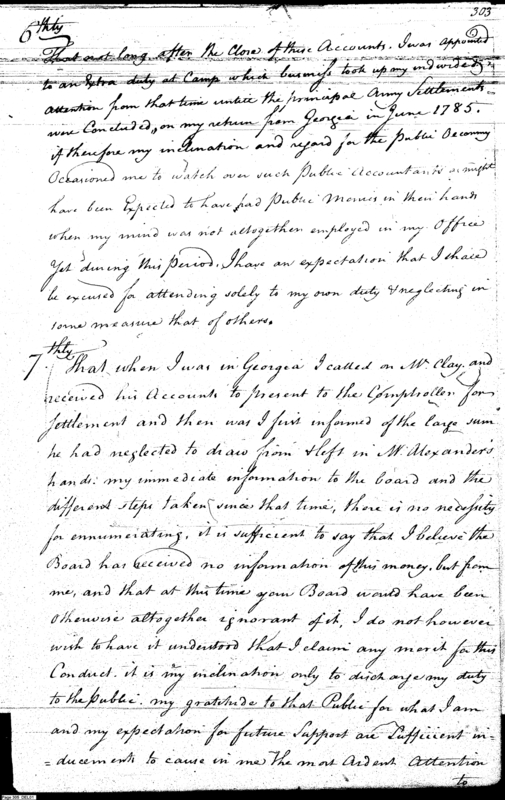 303
6thly
That not long after the Close of these Accounts. I was appointed
to an Extra duty at Camp which business took up my undivided
attention from that time untill the principal Army Settlements
were Concluded, on my return from Georgia in June 1785.
if therefore my inclination and regard for the Public Oeconomy
Occasioned me to watch over such Public Accountants as might
have been Expected to have had Public Monies in their hands
when my mind was not altogether employed in my Office
yet during this Period, I have an expectation that I shall
be excused for attending solely to my own duty & neglecting in
some measure that of others.
7thly
That when I was in Georgia I called on Mr. Clay, and
received his Accounts to present to the Comptroller for
Settlement and then was I first informed of the large sum
he had neglected to draw from & left in Mr. Alexanders
hands: my immediate information to the board and the
different steps taken since that time, there is no necessity
for ennumerating, it is sufficient to say that I believe the
Board has received no information of this money, but from
me, and that at this time your Board would have been
Otherwise altogether ignorant of it, I do not however
wish to have it understood that I claim any merit for this
Conduct. it is my inclination only to discharge my duty
to the Public. my gratitude to that Public for what I am
and my expectation for future Support are Sufficient in-
=ducements to cause in me the most Ardent Attention
to